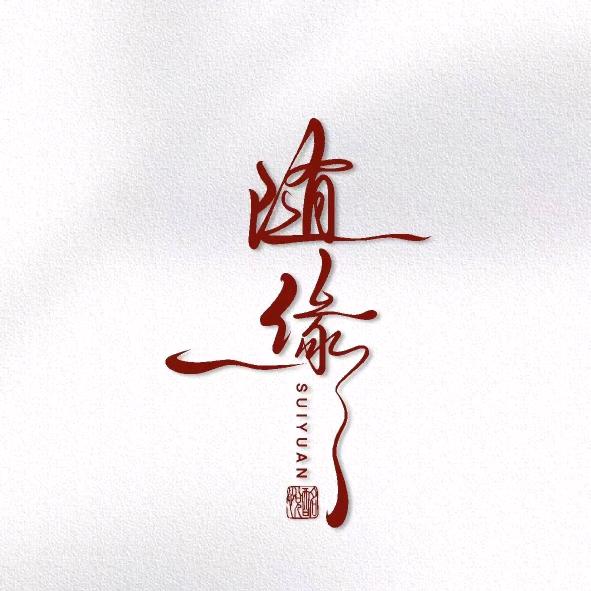 随缘
SUIYUAN